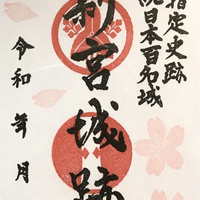 指定史跡
続日本百名城
新宮城跡
令和 年 月